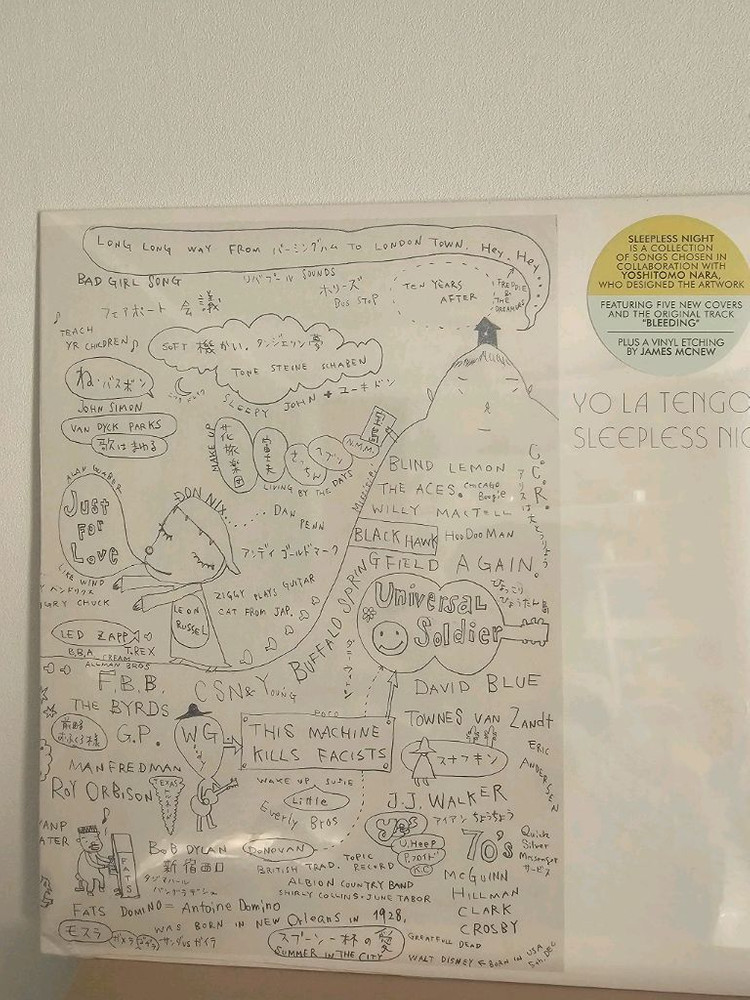 LONG LONG WAY FROM バーミングハム TO LONDON TOWN. Hey. Hey..
BAD GIRL SONG
リバプール SOUNDS
ホリーズ
BUS STOP
TEN YEARS
AFTER
FREDDIE
& THE
DREAMERS
フェアポート 会議
TEACH
YR CHILDREN
SOFT 機かい。タンジェリン夢
TONE STEINE SCHABEN
ね・バスボン
JOHN SIMON
SLEEPY JOHN + ユーキドン
VAN DYCK PARKS
歌はまわる
MAKE UP
花旅楽団
さっちん
N.M.M.
LIVING BY THE DAYS
BLIND LEMON
THE ACES.
CHICAGO
Boogie
WILLY MACTELL
C.C.R.
BLACK HAWK
HooDooMAN
ALAN WABER
Just
For
Love
DON NIX.....
DAN
PENN
アンディ ゴールドマーク
BUFFALO SPRINGFIELD AGAIN.
ひょっこり
ひょうたん島
LIKE WIND
ヘンドリクス
GRY CHUCK
ZIGGY PLAYS GUITAR
CAT FROM JAP.
LEON
RUSSEL
Universal
Soldier
LED ZAPP
B.B.A.
CREAM
T.REX
ALLMAN BROS
F.B.B.
CSN& YOUNG
DAVID BLUE
THE BYRDS
G.P.
WG
THIS MACHINE
KILLS FACISTS
TOWNES VAN Zandt
スナフキン
ERIC
ANDERSEN
MANFREDMAN
ROY ORBISON
TEXAS
WAKE UP, SUSIE
Little
Everly Bros
J.J. WALKER
yes
アイアン ちょうちょう
U.HEEP
P.フロイド
K.C
70's
Quick
Silver
Messenger
サービス
FATS
BOB DYLAN
新宿西口
DONOVAN
BRITISH TRAD.
TOPIC
RECORD
ALBION COUNTRY BAND
SHIRLY COLLINS・JUNE TABOR
McGUINN
HILLMAN
CLARK
CROSBY
タジマハール
バングラデシュ
FATS DOMINO = Antoine Domino
WAS BORN IN NEW Orleans IN 1928,
モスラ
ガメラ
サンダvsガイラ
スプーン一杯の愛
SUMMER IN THE CITY
GREATFULL DEAD
WALT DISNEY
BORN IN USA
5th. DEC
SLEEPLESS NIGHT
IS A COLLECTION
OF SONGS CHOSEN IN
COLLABORATION WITH
YOSHITOMO NARA,
WHO DESIGNED THE ARTWORK
FEATURING FIVE NEW COVERS
AND THE ORIGINAL TRACK
"BLEEDING"
PLUS A VINYL ETCHING
BY JAMES MCNEW
YO LA TENGO
SLEEPLESS NIG